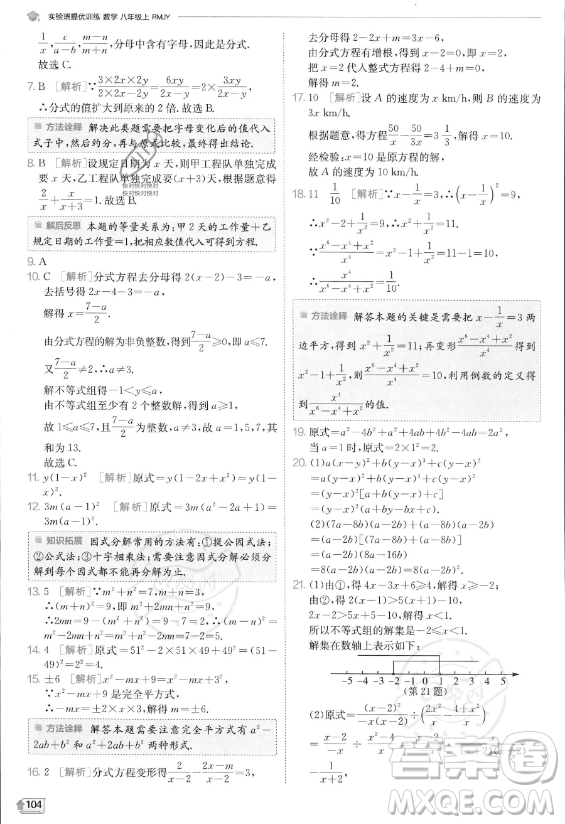 实验班提优训练 数学 八年级上 RMJY
1/x, a/(x-1), (x-m)/(x-n),分母中含有字母,因此是分式.
故选 C.
7. B [解析]∵(3×2x×2y)/(2x-2y)=6xy/(x-y)=2×3xy/(x-y),
∴分式的值扩大到原来的 2 倍.故选 B.
方法诠释 解决此类题需要把字母变化后的值代入
式子中,然后约分,再与原式比较,最终得出结论.
8. B [解析]设规定日期为 x 天,则甲工程队单独完成
要 x 天,乙工程队单独完成需要(x+3)天,根据题意,得
2/x+x/(x+3)=1.故选 B.
解后反思 本题的等量关系为:甲 2 天的工作量+乙
规定日期的工作量=1,把相应数值代入可得到.
9. A
10. C [解析]分式方程去分母得 2(x-2)-3=-a,
去括号得 2x-4-3=-a,
解得 x=(7-a)/2.
由分式方程的解为非负整数,得(7-a)/2≥0,即 a≤7.
又(7-a)/2≠2,∴a≠3.
解不等式组得-1<y≤a,
由不等式组至少有 2 个整数解,得到 a≥1,
故 1≤a≤7,且(7-a)/2为整数,a≠3,故 a=1,5,7,其
和为 13.
故选 C.
11. y(1-x)² [解析]原式=y(1-2x+x²)=y(1-
x)².
12. 3m(a-1)² [解析]原式=3m(a²-2a+1)=
3m(a-1)².
知识拓展 因式分解常用的方法有:①提公因式法;
②公式法;③十字相乘法;需要注意因式分解必须分
解到每个因式都不能再分解为止.
13. 5 [解析]∵m²+n²=7,m+n=3,
∴(m+n)²=9,即 m²+2mn+n²=9,
∴2mn=9-(m²+n²)=9-7=2,∴(m-n)²=
m²-2mn+n²=m²+n²-2mn=7-2=5.
14. 4 [解析]原式=51²-2×51×49+49²=(51-
49)²=2²=4.
15. ±6 [解析]∵x²-mx+9 是完全平方式,
∴x²-mx+9=(x±3)²=x²±6x+9.
方法诠释 解答本题需要注意完全平方式有 a²-
2ab+b²和 a²+2ab+b²两种形式.
16. 2 [解析]分式方程变形得2x/(x-2)-m/(x-2)=3,
104
去分母得 2x-m=3x-6,
把 x=2 代入整式方程得 2-4+m=0,
解得 m=2.
17. 10 [解析]设 A 的速度为 x km/h,则 B 的速度为
3x km/h.
根据题意,得方程50/x-50/3x=200/60,解得 x=10.
经检验:x=10 是原方程的根.
故 A 的速度为 10 km/h.
18. 11 1/10 [解析]∵x-1/x=3,∴(x-1/x)²=9,
∴x²-2+1/x²=9,∴x²+1/x²=11,
∴(x⁶-x⁴+x²)/x⁴=x²-1+1/x²=11-1=10,
∴x⁴/(x⁶-x⁴+x²)=1/10.
方法诠释 解答本题的关键是需要把 x-1/x=3 两
边平方,得到 x²+1/x²=11;再变形(x⁶-x⁴+x²)/x⁴=
x²-1+1/x²=11-1=10,再利用倒数的定义得
到x⁴/(x⁶-x⁴+x²)的值.
19. 原式=a²-4b²+a²+4ab+4b²-4ab=2a²,
当 a=1 时,原式=2×1²=2.
20. (1)a(x-y)²+4(x-y)³
=(x-y)²[a+4(x-y)]
=(x-y)²(a+4x-4y).
(2)7(a-8b)(a+b)-7b(a-8b)
=7(a-8b)(a+b-b)
=7a(a-8b).
21. (1)由①,得 4x+6≥4,
解得 x≥-1/2.
由②,得 2(x-1)>5(x-2)
2x-2>5x-10,
解得 x<8/3.
所以不等式组的解集是-1/2≤x<8/3.
解集在数轴上表示如下:
-5 -4 -3 -2 -1 0 1 2 3 4 5
(第 21 题)